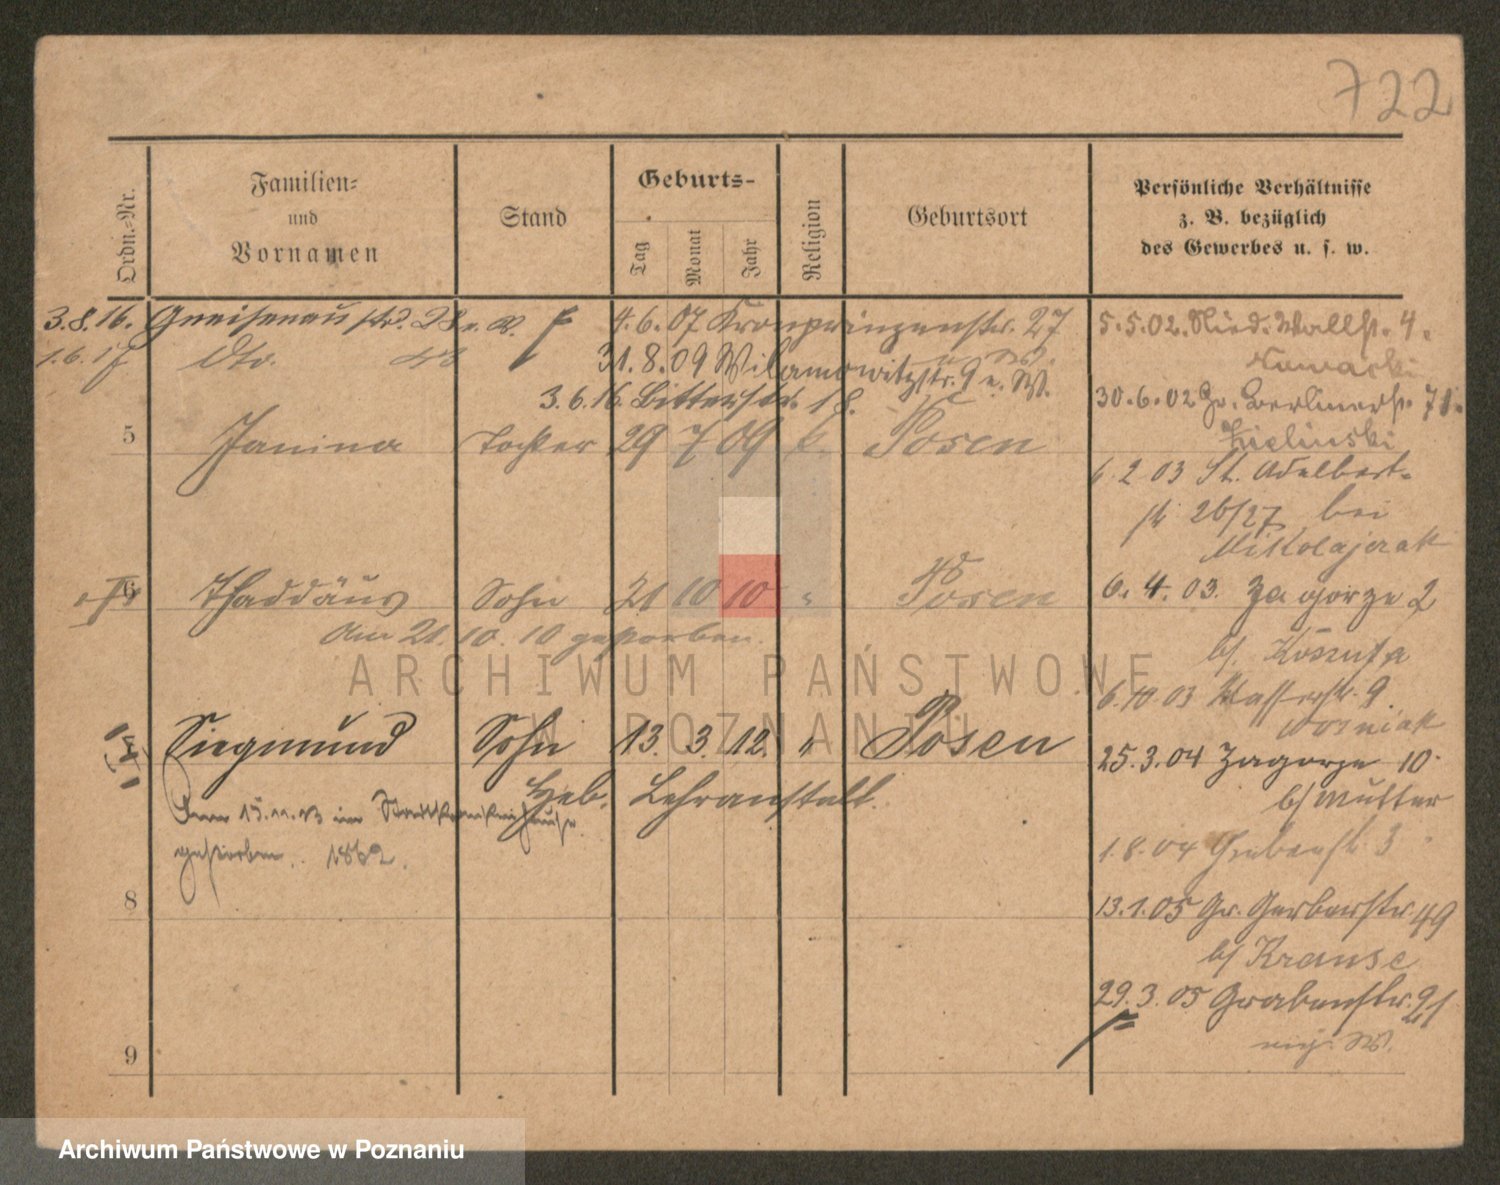 722
Ordn.-Nr.
Familien-
und
Vornamen
Stand
Geburts-
Tag
Monat
Jahr
Religion
Geburtsort
Persönliche Verhältnisse
z. B. bezüglich
des Gewerbes u. s. w.
3.8.16. Gneisenaustr.
4.6.07 Kronprinzenstr. 27
5.5.02. Nied. Wallst. 4.
Nowacki
1.6.17 dto.
31.8.09 Wilamowitzstr. 9 e. W.
3.6.16. Bitterstr. 18.
30.6.02 Gr. Berlinerst. 71.
Zielinski
5 Janina Tochter 29 7 09 k. Posen
6.2.03 St. Adalbert-
str. 26/27 bei
Mikolajczak
6 Thaddäus Sohn 21 10 10 " Posen
Am 21.10.10 gestorben.
6.4.03. Zagorze 2
b/
6.10.03 Wasserstr. 9.
Wozniak
ARCHIWUM PAŃSTWOWE
W POZNANIU
Siegmund Sohn 13. 3. 12. " Posen
Heb. Lehranstalt.
25.3.04 Zagorze 10.
b/ Mutter
Am 15.11.13 im Stadtkrankenhause
gestorben. 1862.
1.8.04 Grabenstr. 3
8
13.1.05 Gr. Gerberstr. 49
b/ Krause
29.3.05 Grabenstr. 21
9
Archiwum Państwowe w Poznaniu